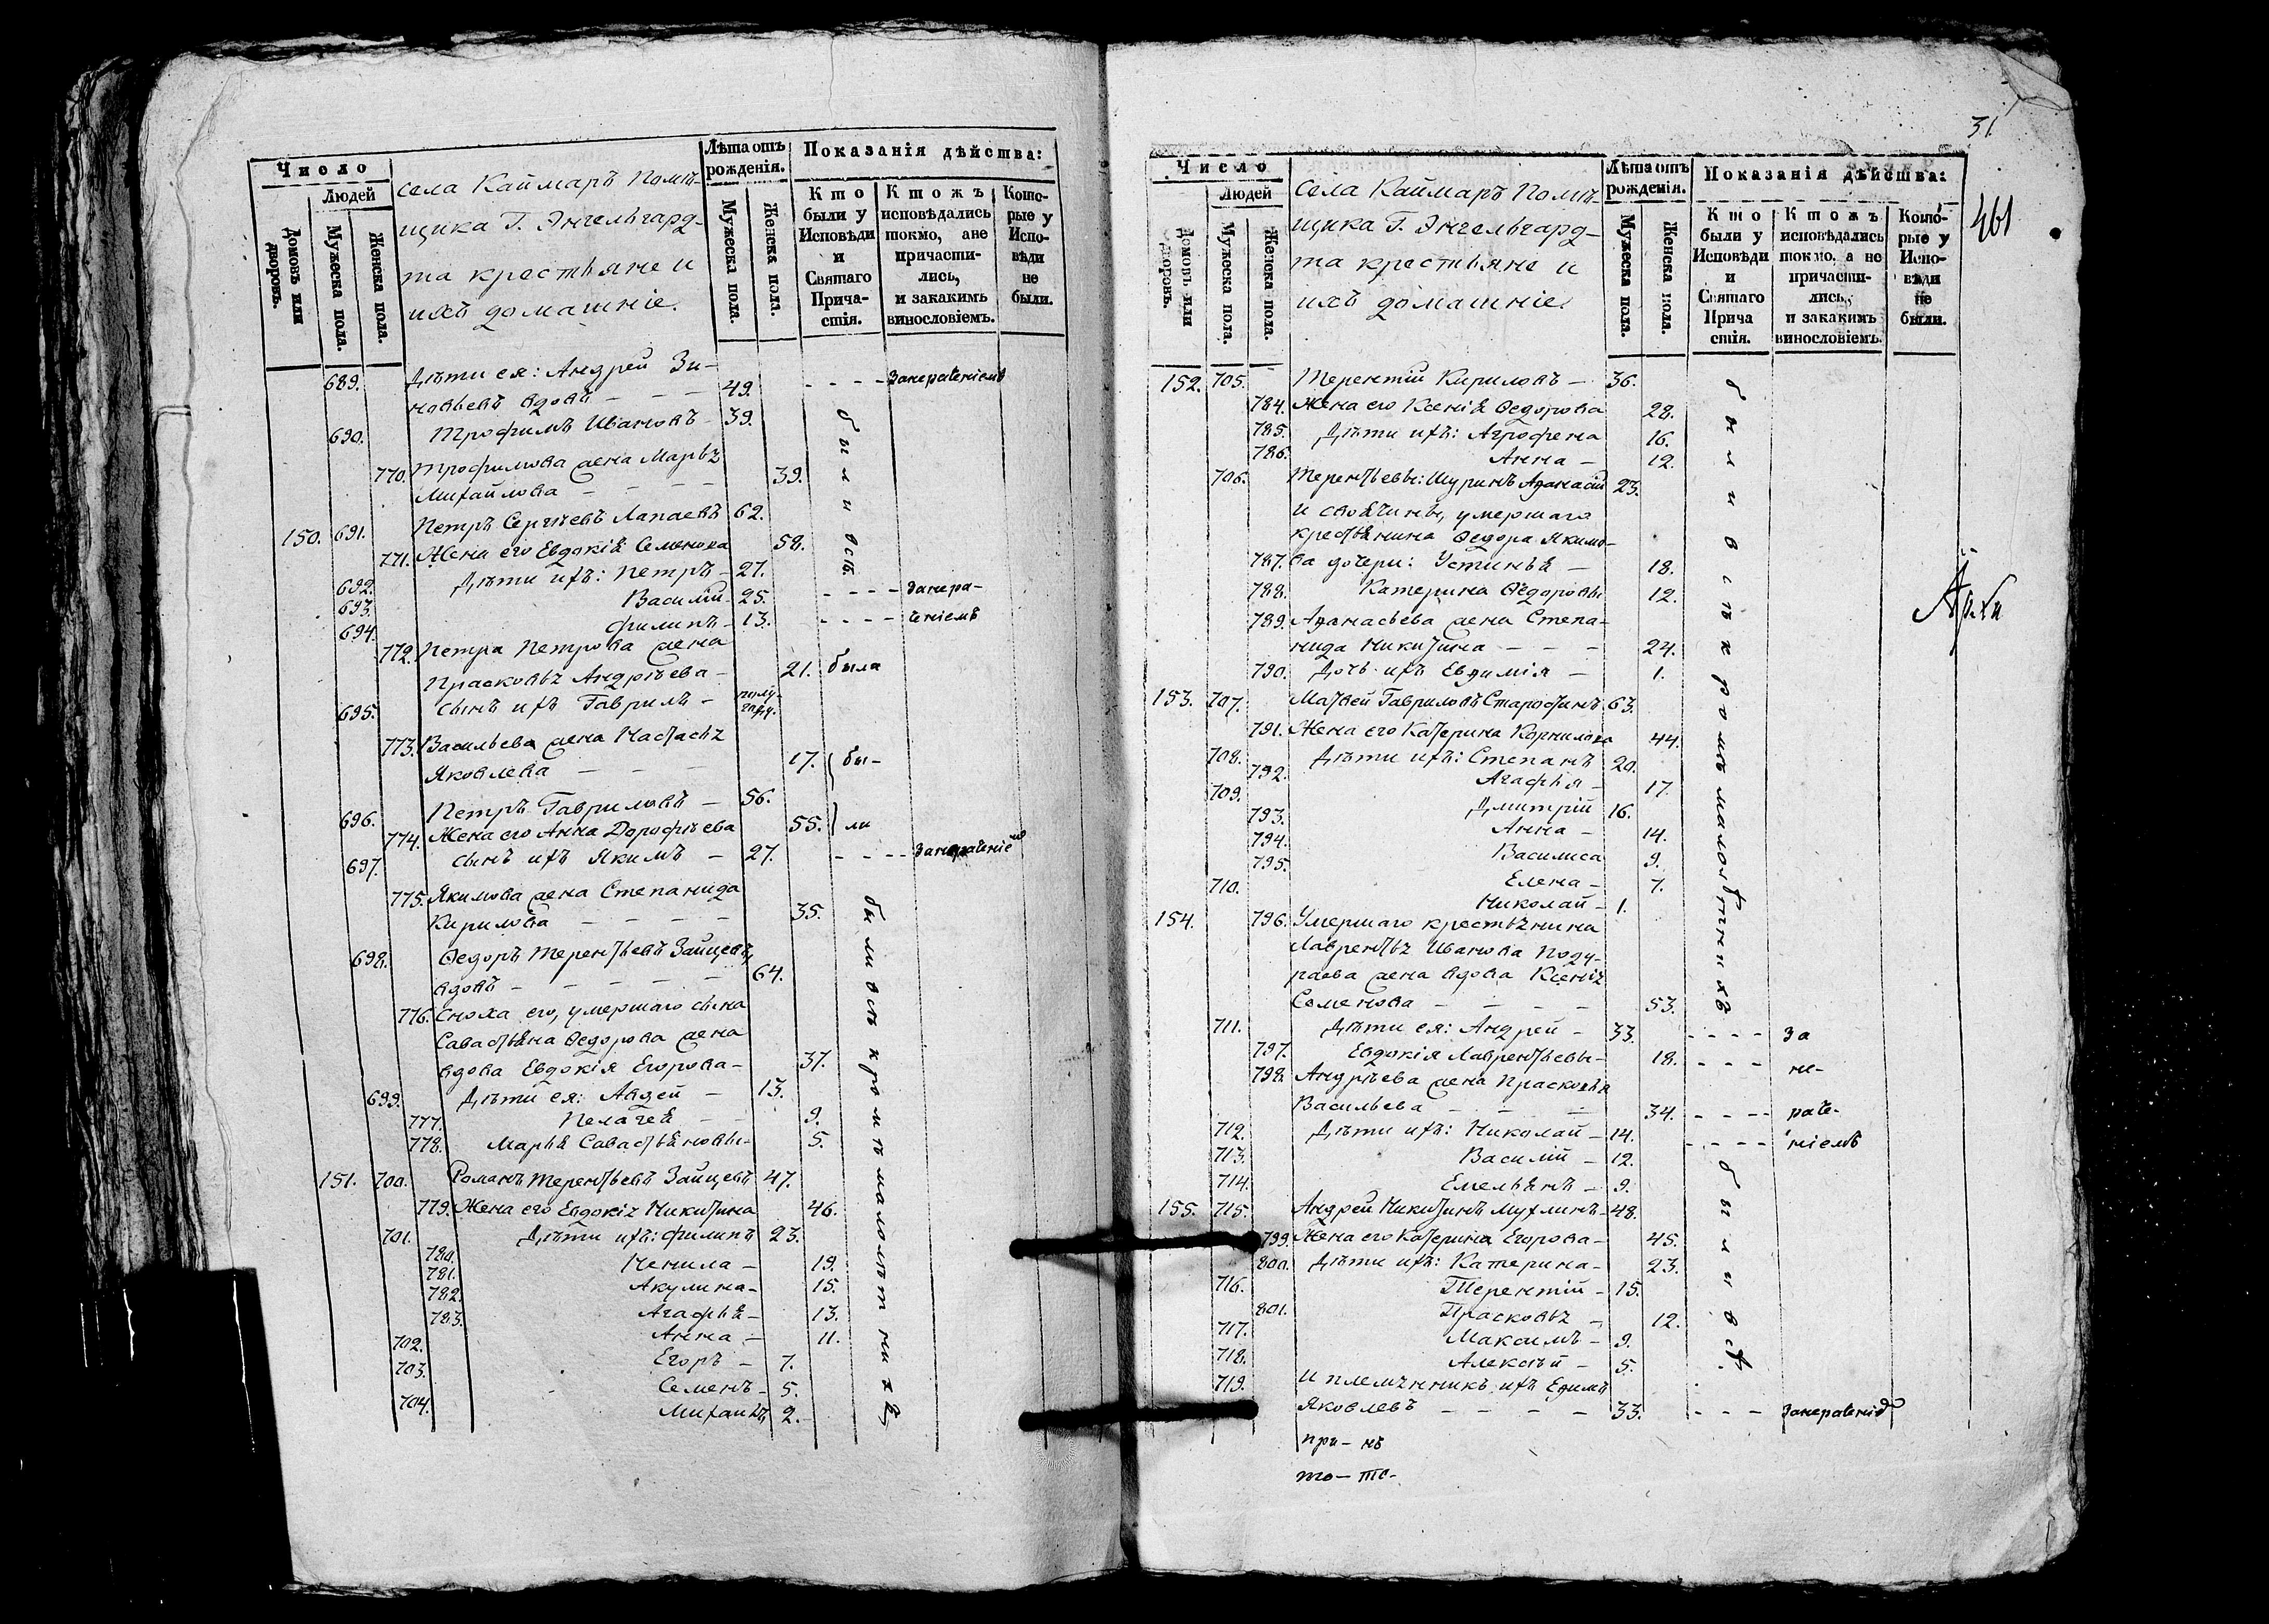 Число
Людей
Домовъ или дворовъ.
Мужеска пола.
Женска пола.
села Каймаръ Помѣ-
щика Г. Энгельгард-
та крестьяне и
ихъ домашніе.
Лѣта отъ рожденія.
Мужеска пола.
Женска пола.
Показанія дѣйства:
Кто были у Исповѣди и Святаго Прича- стія.
Ктожъ исповѣдались токмо, ане причасти- лись, и закакимъ винословіемъ.
Кото- рые у Испо- вѣди не были.
689. Дѣти ея: Андрей Зи-
новьевъ вдовъ — — — 49. - - - - Занераченіемъ
690. Трофимъ Ивановъ - 39.
770. Трофимова жена Марья
Михайлова — — — — 39.
150. 691. Петръ Сергѣевъ Лапаевъ 62.
771. Жена его Евдокія Семенова 58.
692. Дѣти ихъ: Петръ — 27.
693. Василій - 25. - - - - Занера-
694. Филипъ - 13. - - - - ченіемъ
772. Петра Петрова жена
Прасковья Андрѣева — 21. была
695. сынъ ихъ Гаврилъ — полу- году.
773. Васильева жена Настасья
Яковлева — — — 17. бы-
696. Петръ Гавриловъ — 56.
774. Жена его Анна Дорофѣева 55. ли
697. сынъ ихъ Якимъ — 27. - - - - Занераченіемъ
775. Якимова жена Степанида
Кирилова — — — — 35.
698. Ѳедоръ Терентьевъ Зайцевъ,
вдовъ — — — — — 64.
776. Сноха его, умершаго сына
Савастьяна Ѳедорова жена
вдова Евдокія Егорова — 37.
699. Дѣти ея: Авдей — 13.
777. Пелагея — 9.
778. Марья Савастьяновы — 5.
151. 700. Романъ Терентьевъ Зайцевъ 47.
779. Жена его Евдокія Никитина 46.
701. Дѣти ихъ: Филипъ 23.
780. Ненила — 19.
781. Акулина — 15.
782. Агафья — 13.
783. Анна — 11.
702. Егоръ — 7.
703. Семенъ — 5.
704. Михаилъ 2.
были всѣ
были всѣ кромѣ малолѣтнихъ
31
461
Число
Людей
Домовъ или дворовъ.
Мужеска пола.
Женска пола.
Села Каймаръ Помѣ-
щика Г. Энгельгард-
та крестьяне и
ихъ домашніе.
Лѣта отъ рожденія.
Мужеска пола.
Женска пола.
Показанія дѣйства:
Кто были у Исповѣди и Святаго Прича стія.
Ктожъ исповѣдались токмо, а не причасти- лись, и закакимъ винословіемъ.
Кото- рые у Испо- вѣди не были.
152. 705. Терентій Кириловъ — 36.
784. Жена его Ксенія Ѳедорова 28.
785. Дѣти ихъ: Агрофена 16.
786. Анна — 12.
706. Терентьевы: Шуринъ Аѳанасій 23.
и своячины, умершаго
крестьянина Ѳедора Якимо-
787. ва дочери: Устинья — 18.
788. Катерина Ѳедоровы 12.
789. Аѳанасьева жена Степа-
нида Никитина — — — 24.
790. Дочь ихъ Евѳимія — 1.
153. 707. Матвей Гавриловъ Старостинъ 63.
791. Жена его Катерина Корнилова 44.
708. Дѣти ихъ: Степанъ 20.
792. Агафья — 17.
709. Дмитрій 16.
793. Анна — 14.
794. Василиса 9.
795. Елена — 7.
710. Николай — 1.
154. 796. Умершаго крестьянина
Лаврентья Иванова Поду-
раева жена вдова Ксенія
Семенова — — — — 53.
711. Дѣти ея: Андрей — 33. - - - - За
797. Евдокія Лаврентьевы — 18. - - - не-
798. Андрѣева жена Прасковья
Васильева — — — 34. - - - - раче-
712. Дѣти ихъ: Николай — 14. - - - - ніемъ
713. Василій — 12.
714. Емельянъ — 9.
155. 715. Андрей Никитинъ Мухлинъ — 48.
799. Жена его Катерина Егорова — 45.
800. Дѣти ихъ: Катерина — 23.
716. Терентій — 15.
801. Прасковья — 12.
717. Максимъ — 9.
718. Алексѣй — 5.
719. И племянникъ ихъ Ефимъ
Яковлевъ — — — — 33. - - - Занераченіемъ
были всѣ кромѣ малолѣтнихъ
были всѣ
при— нъ
то— тс-